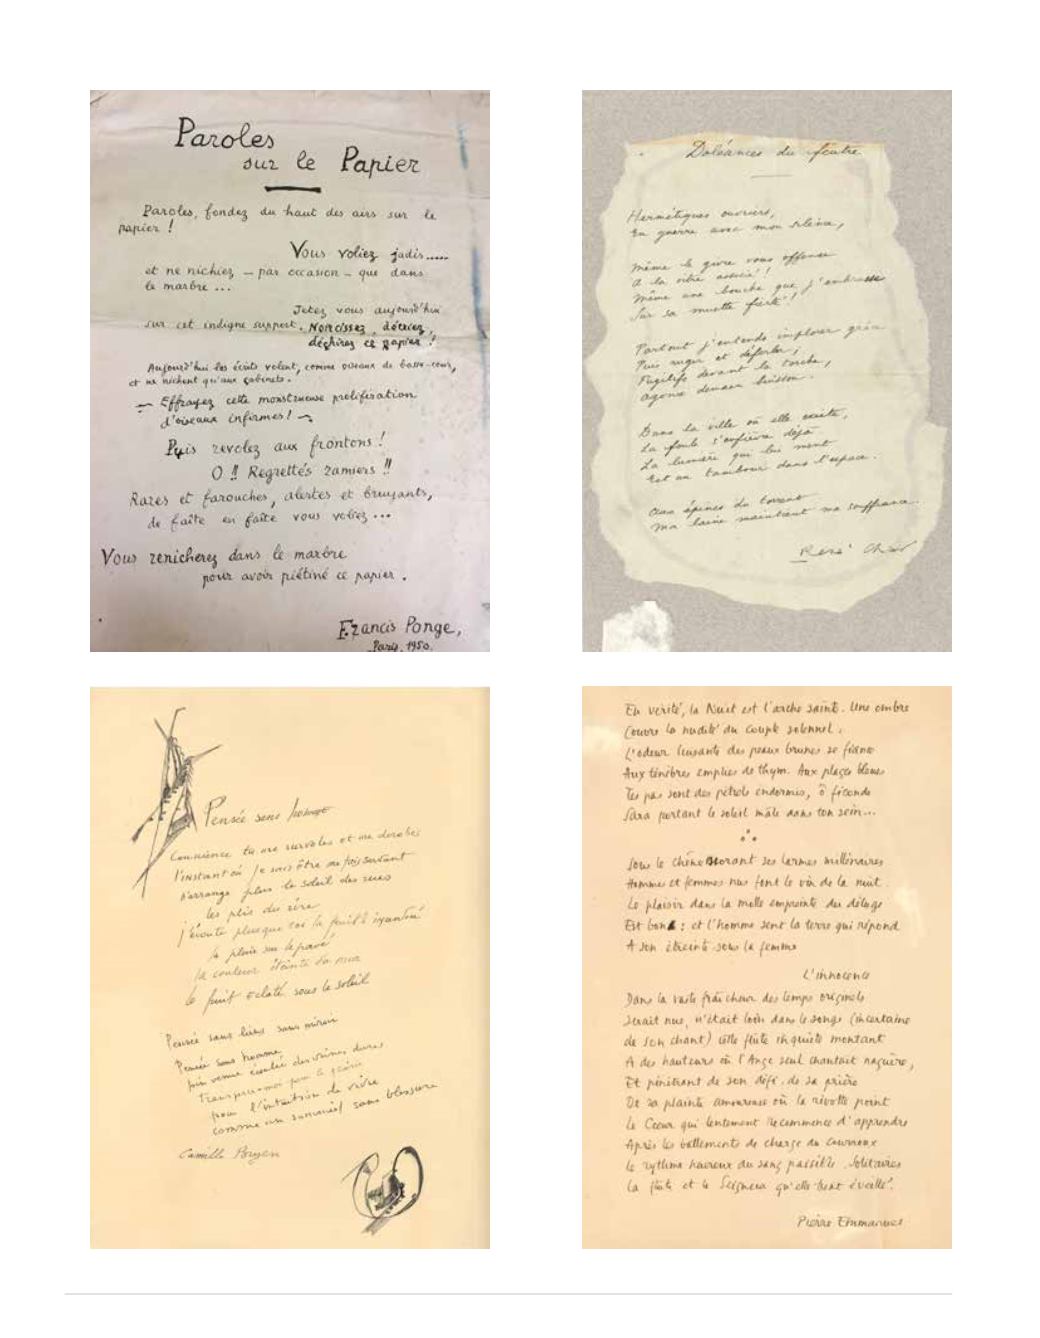 Paroles
sur le Papier
Paroles, fondez du haut des airs sur le
papier !
Vous voliez jadis.....
et ne nichiez - par occasion - que dans
le marbre ...
Jetez vous aujourd'hui
sur cet indigne support. Noircissez, décriez,
déchirez ce papier !
Aujourd'hui les écrits volent, comme oiseaux de basse-cour,
et ne nichent qu'aux cabinets.
- Effrayez cette monstrueuse prolifération
d'oiseaux infirmes ! -
Puis revolez aux frontons !
O !! Regrettés ramiers !!
Rares et farouches, alertes et bruyants,
de faîte en faîte vous voliez ...
Vous renicherez dans le marbre
pour avoir piétiné ce papier .
Francis Ponge,
Paris, 1950.
Doléances du feutre
Hermétiques ouvriers,
En guerre avec mon silence,
Même le givre vous offense
A la vitre associé !
Même une bouche que j'embrasse
Sur sa muette fierté !
Partout j'entends implorer grâce
Puis rugir et déferler,
Fugitifs devant la torche,
Agonie demain buisson.
Dans la ville où elle existe,
La foule s'enfièvre déjà.
La lumière qui lui ment
Est un tambour dans l'espace.
Aux épines du torrent
Ma laine maintient ma souffrance.
René Char
Pensée sans homme
Conscience tu me survoles et me dérobes
l'instant où je
le soleil des rues
les plis du rire
j'écoute plus que toi la feuille
la pluie sur le pavé
la couleur éteinte du mur
le fruit éclaté sous le soleil
Pensée sans liens sans miroir
Pensée sans homme
pour l'intuition de vivre
comme un sommeil sans blessure
Camille Bryen
En vérité, la Nuit est l'arche sainte. Une ombre
Couvre la nudité du couple solennel.
L'odeur luisante des peaux brunes se fiance
Aux ténèbres emplies de thym. Aux plages bleues
Tes pas sont des pétrels endormis, ô féconde
Sara portant le soleil mâle dans ton sein...
Sous le chêne ses larmes millénaires
Hommes et femmes nus font le vin de la nuit.
Le plaisir dans la molle empreinte du déluge
Est bon : et l'homme sent la terre qui répond
A son étreinte sous la femme
L'innocence
Dans la vaste fraîcheur des temps originels
Serait nue, n'était loin dans le songe (incertaine
de son chant) cette flûte inquiète montant
A des hauteurs où l'Ange seul chantait naguère,
Et pénétrant de son défi, de sa prière
De sa plainte amoureuse où la révolte point
Le Cœur qui lentement recommence d'apprendre
Après les battements de charge du courroux
Le rythme heureux du sang paisible. Solitaires
La flûte et le Seigneur qu'elle tient éveillé.
Pierre Emmanuel